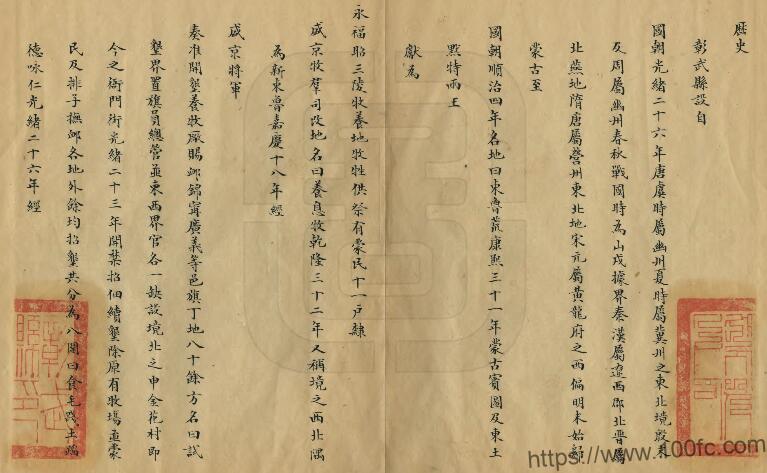 歷史
彰武縣設自
國朝光緒二十六年唐虞時屬幽州夏時屬冀州之東北境殷
及周屬幽州春秋戰國時為山戎據界秦漢屬遼西郡北晉屬
北燕地隋唐屬營州東北地宋元屬黃龍府之西偏明末始歸
蒙古至
國朝順治四年名地曰東魯荒康熙三十一年蒙古賓圖及東土
默特兩王
獻為
永福昭三陵牧養地牧牲供祭有蒙民十一戶隸
盛京牧羣司改地名曰養息牧乾隆三十二年又稱境之西北隅
為新東魯嘉慶十八年經
盛京將軍
奏准開墾養牧廠賜錦甯廣義等邑旗丁地八十餘方名曰試
墾界置旗員總管並東西界官各一缺設境北之申金花村即
今之衙門街光緒二十三年開禁招佃續墾除原有牧場並蒙
民及排子撫卹各地外餘均招墾共分為八開曰食毛踐土端
德咏仁光緒二十六年經
https://www.100fc.com